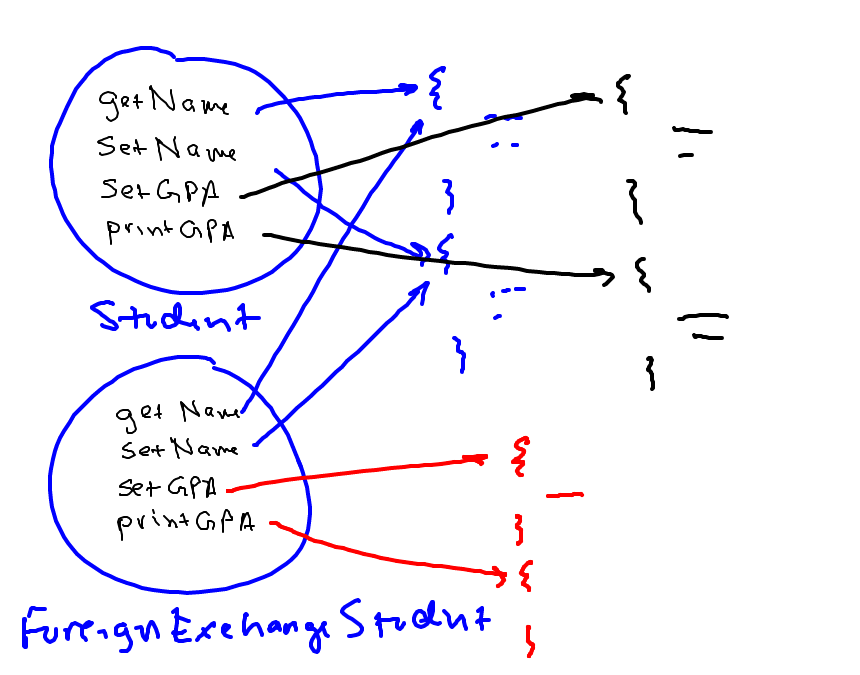 getName
SetName
SetGPA
printGPA
Student
get Name
setName
setGPA
printGPA
ForeignExchangeStudent
{
}
{
}
{
}
{
}
{
}
{
}